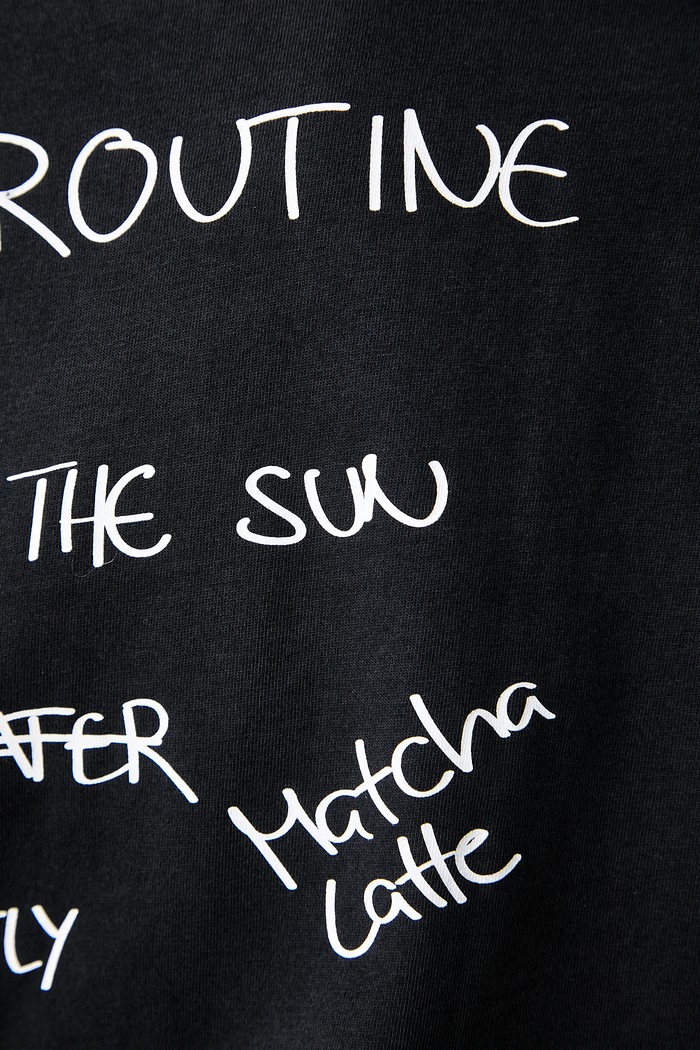 ROUTINE
THE SUN
ATER
Matcha
Latte
LY